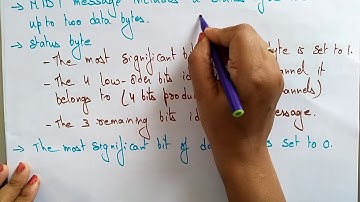 → MIDI message includes a status
up to two data bytes.
→ status byte
- The most significant bit byte is set to 1.
- The 4 low-order bits channel it
belongs to (4 bits produ channels)
- The 3 remaining bits message.
→ The most significant bit of da is set to 0.